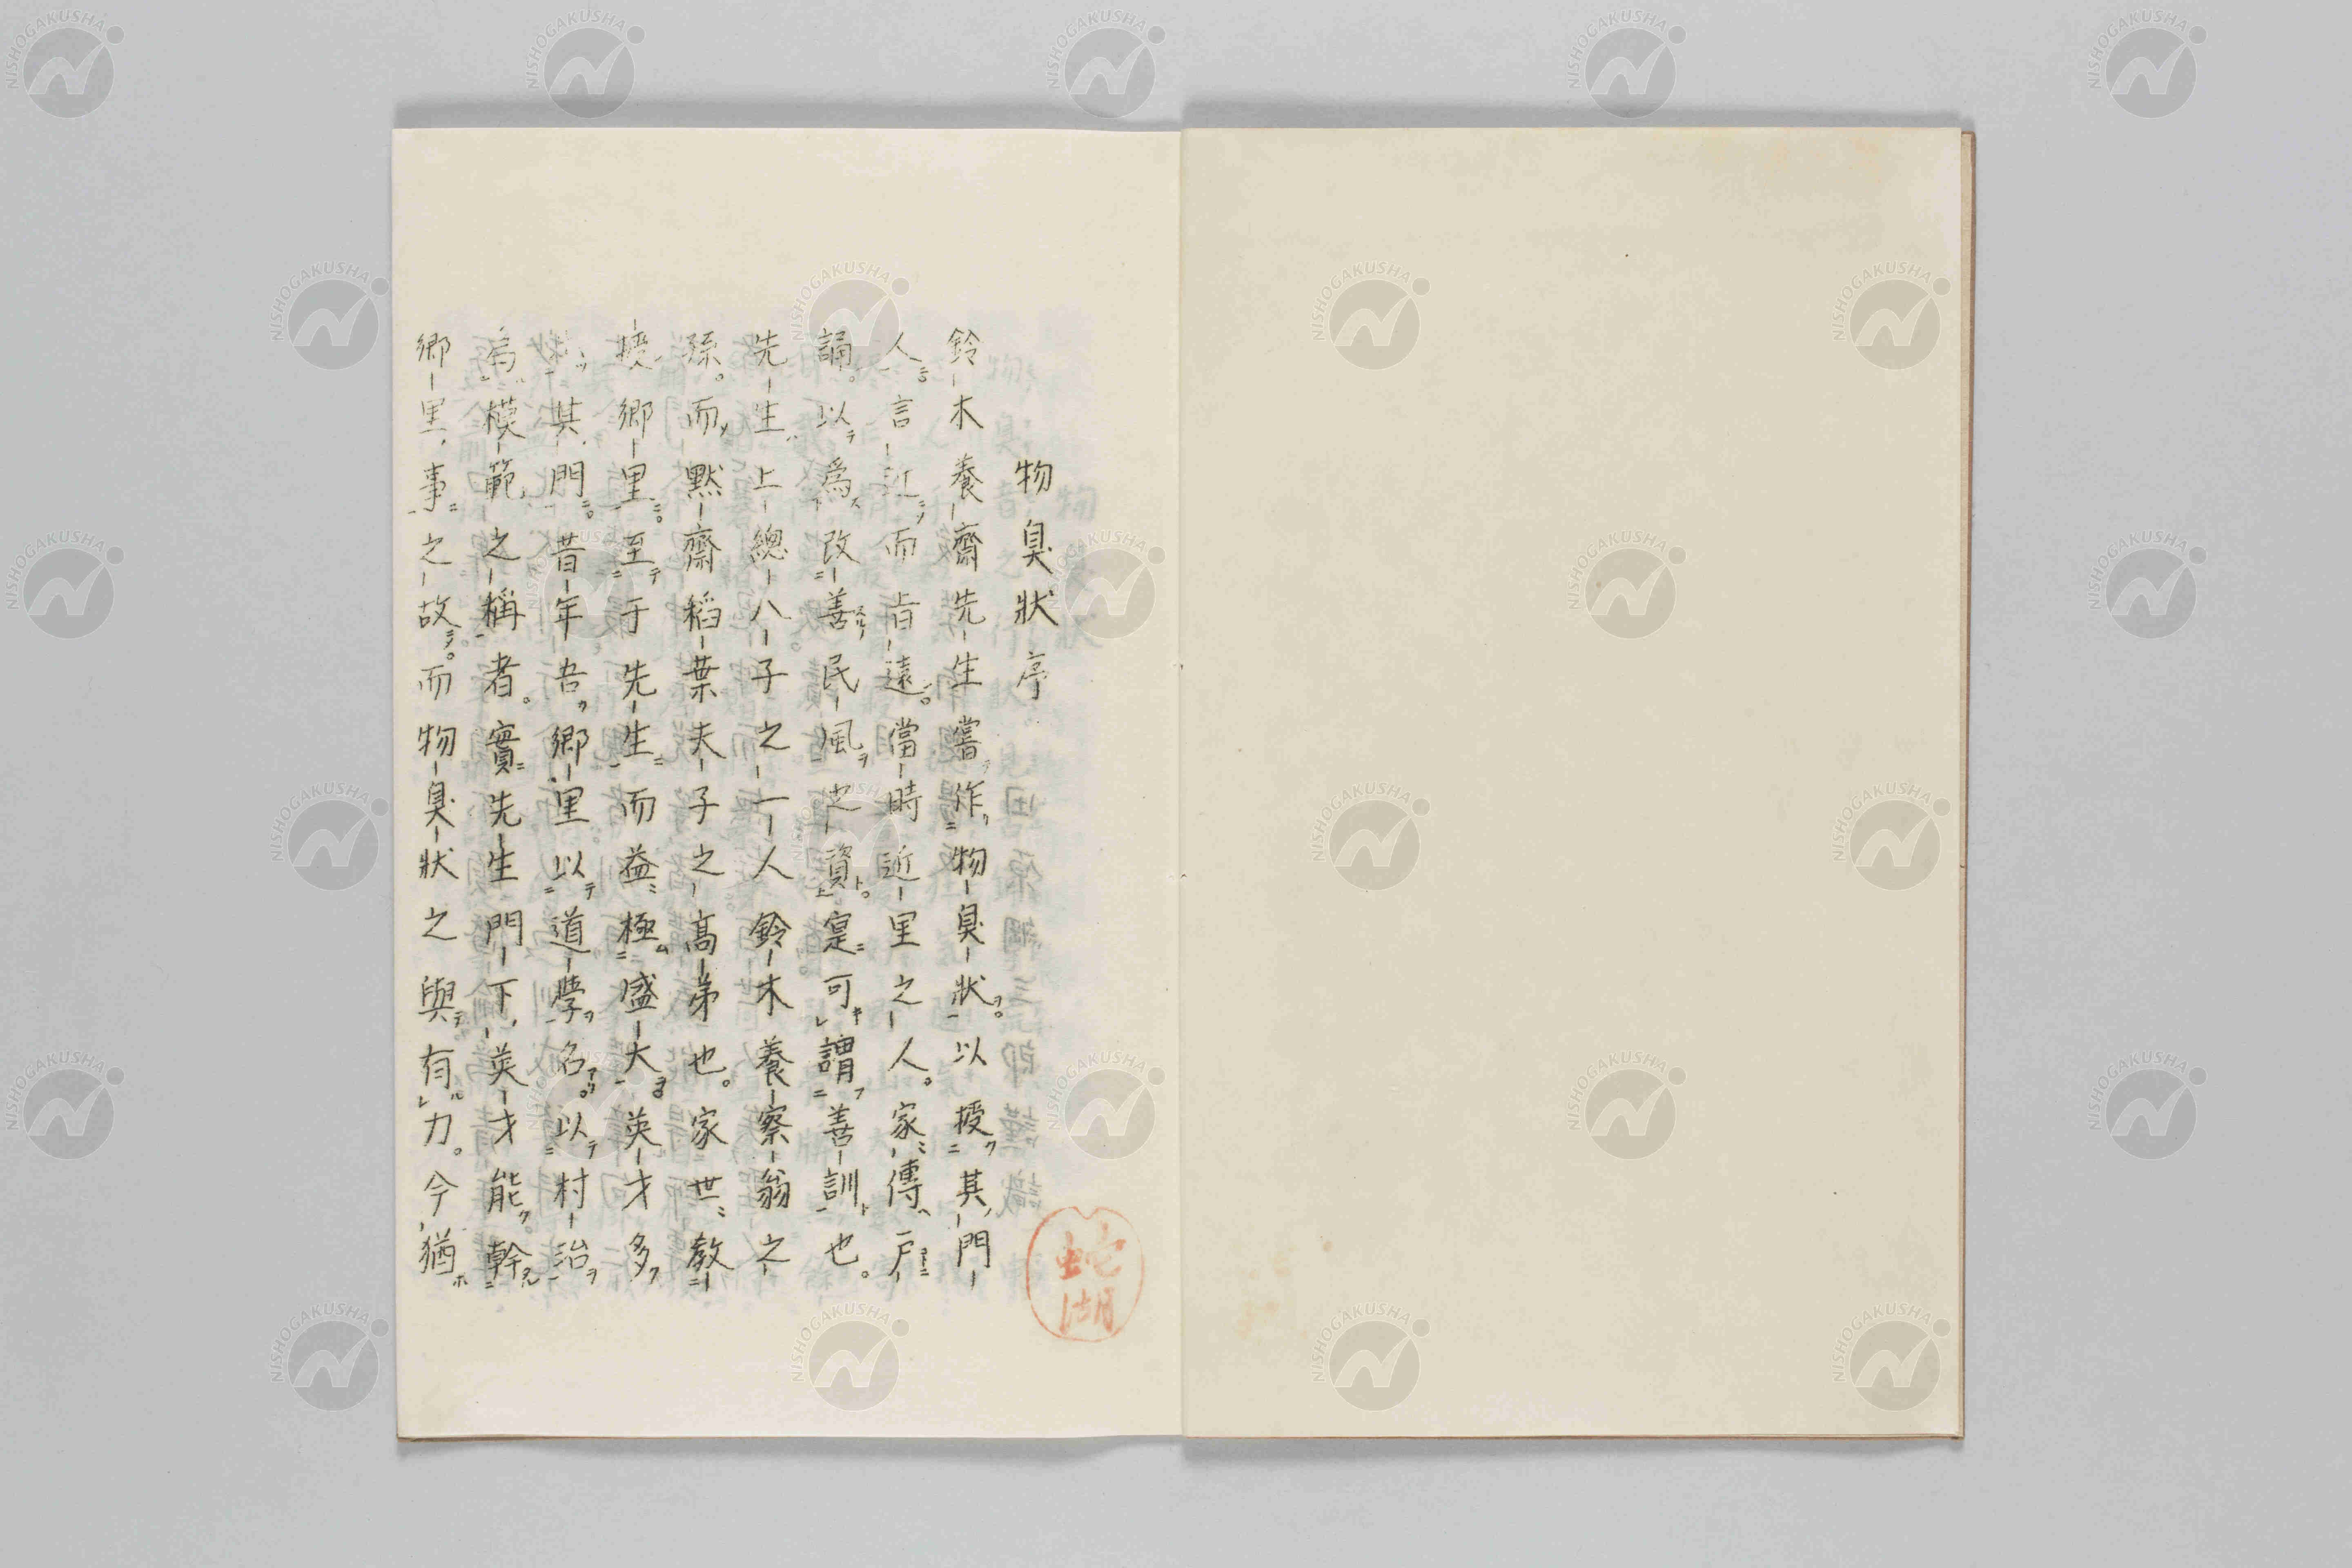 物臭狀序
鈴木養齋先生嘗作物臭狀。以授其門
人。言近而旨遠。當時近里之人。家傳戶
誦。以爲改善民風之資。寔可謂善訓也。
先生上總八子之一人鈴木養察翁之
孫。而默齋稻葉夫子之高弟也。家世教
授鄉里。至于先生而益極盛大英才多
其門。昔年吾鄉里以道學名。以村治
爲模範之稱者。實先生門下英才能幹
鄉里事之故。而物臭狀之與有力。今猶
蛇湖
NISHOGAKUSHA